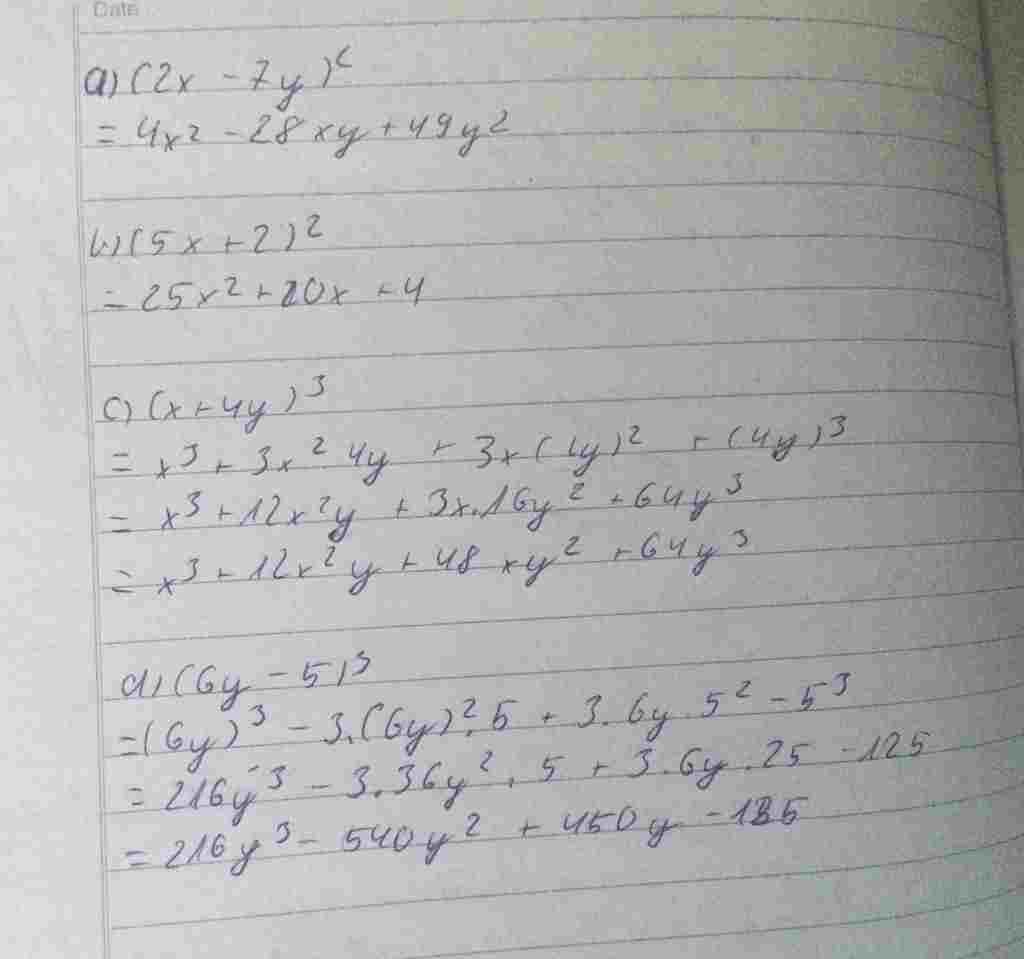 Date
a) (2x - 7y)²
= 4x² - 28xy + 49y²
b) (5x + 2)²
= 25x² + 20x + 4
c) (x + 4y)³
= x³ + 3x² 4y + 3x (4y)² + (4y)³
= x³ + 12x²y + 3x.16y² + 64y³
= x³ + 12x²y + 48xy² + 64y³
d) (6y - 5)³
= (6y)³ - 3.(6y)².5 + 3.6y.5² - 5³
= 216y³ - 3.36y².5 + 3.6y.25 - 125
= 216y³ - 540y² + 450y - 125